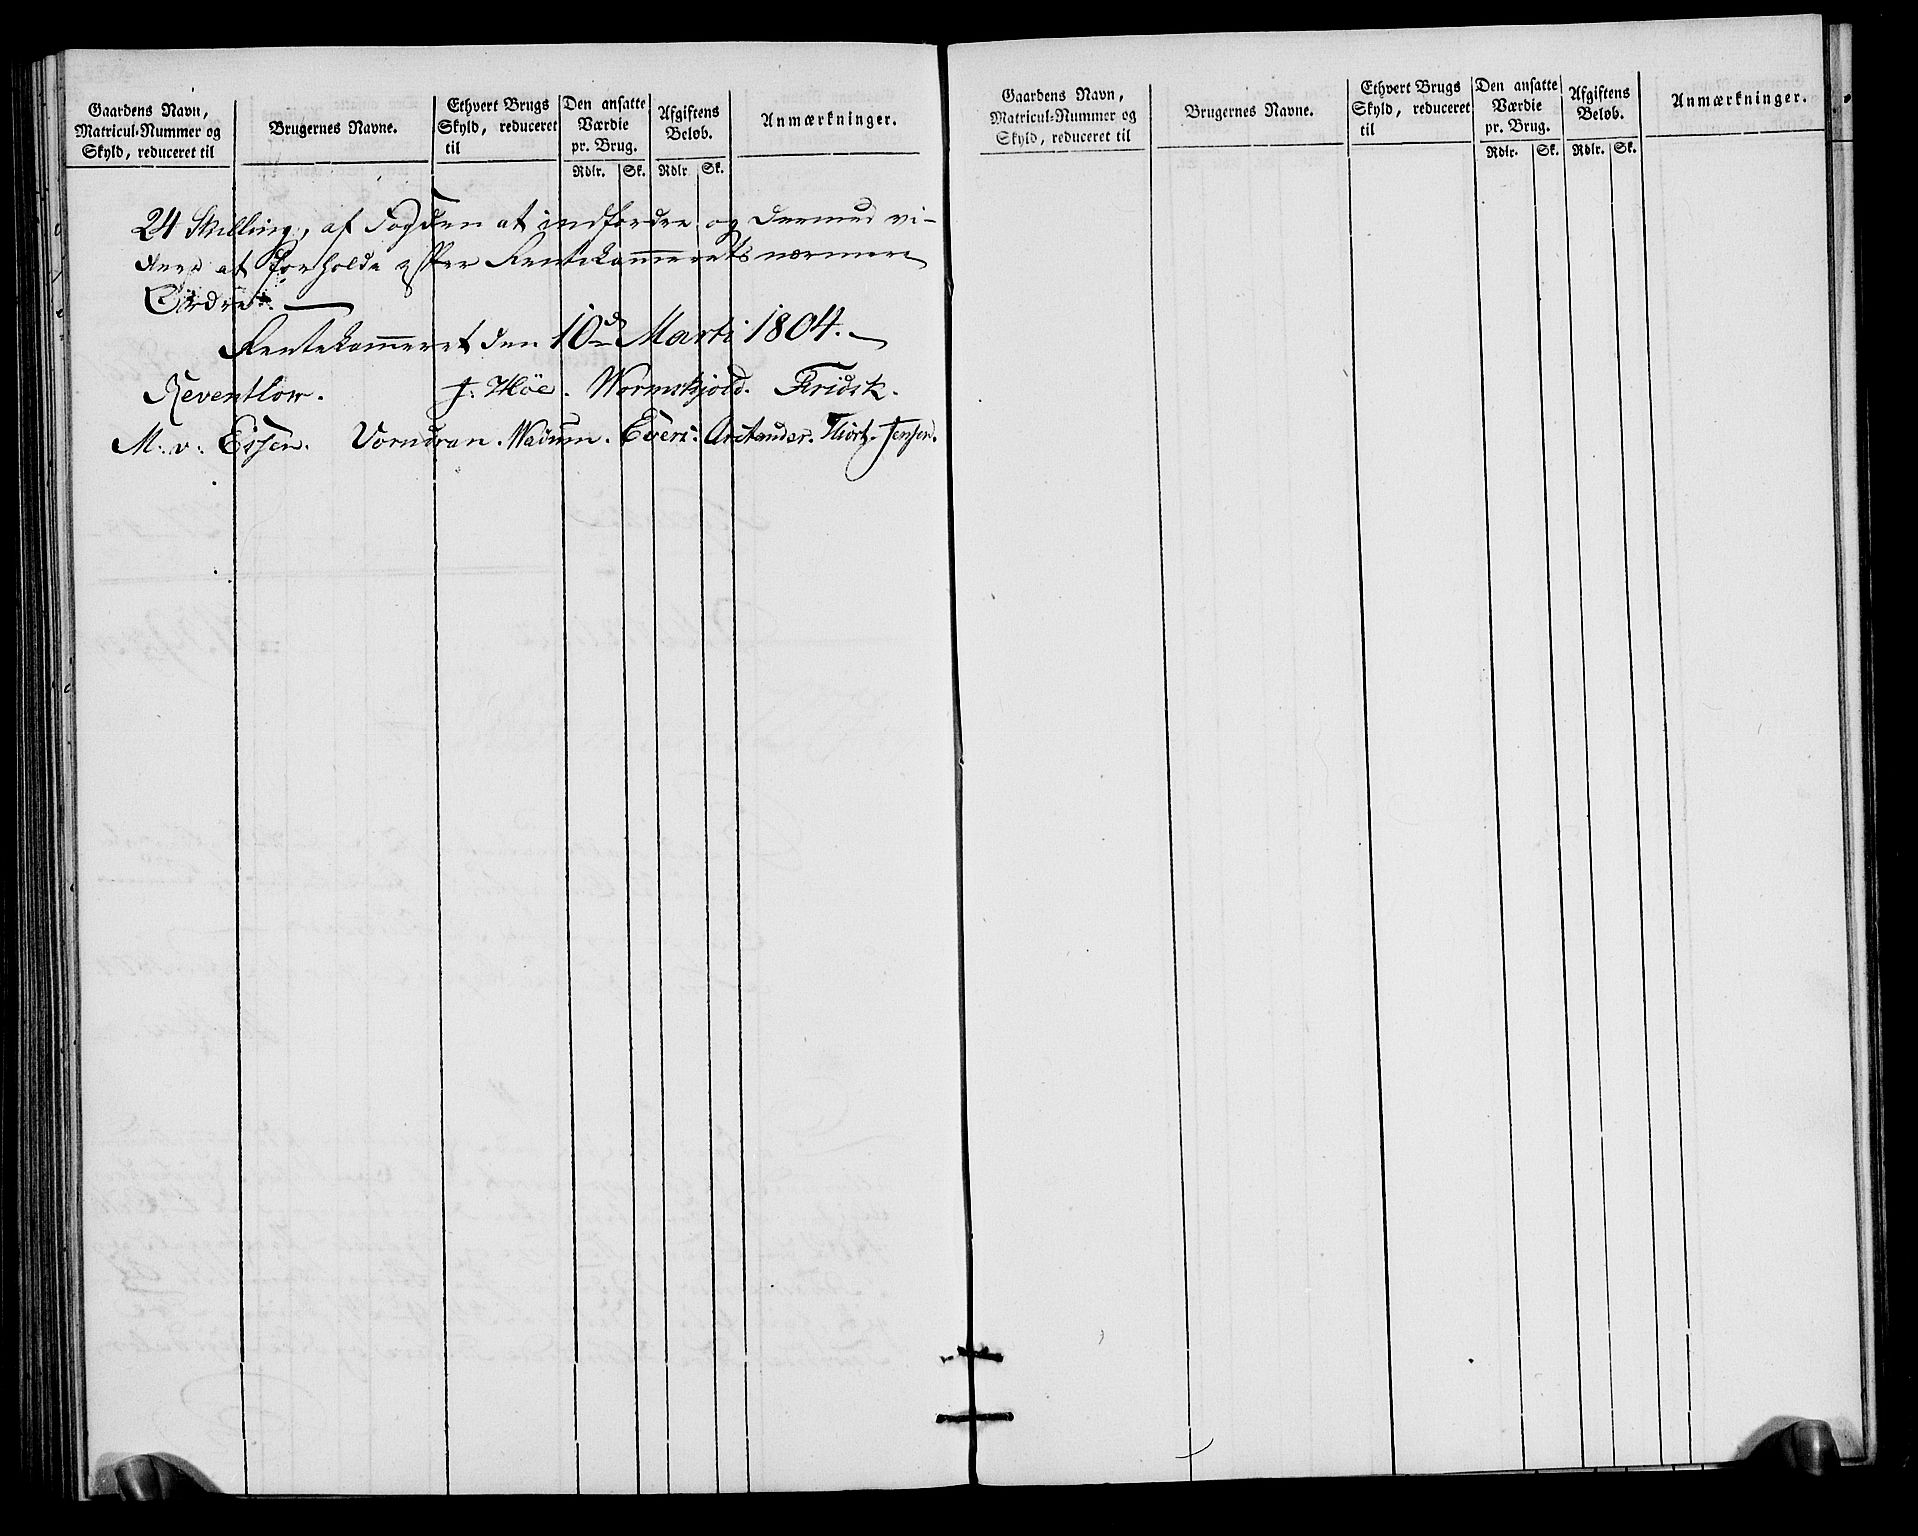 Gaardens Navn,
Matricul-Nummer og
Skyld, reduceret til
Brugernes Navne.
Ethvert Brugs
Skyld, reduceret
til
Den ansatte
Værdie
pr. Brug.
Rdlr. Sk.
Afgiftens
Beløb.
Rdlr. Sk.
Anmærkninger.
24 Skilling, af Fogden at indfordre og dermed vi-
dere at forholde efter Rentekam̅erets nærmere
Ordre.
Rentekam̅eret den 10de Marti 1804.
Reventlow. J. Höe. Wormskjold. Fridsk.
M. v. Essen. Vorndran. Wadum. Evers. Arctander. Hiort. Jensen.
Gaardens Navn,
Matricul-Nummer og
Skyld, reduceret til
Brugernes Navne.
Ethvert Brugs
Skyld, reduceret
til
Den ansatte
Værdie
pr. Brug.
Rdlr. Sk.
Afgiftens
Beløb.
Rdlr. Sk.
Anmærkninger.